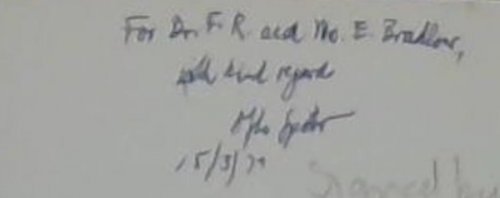 For Dr. F. R. and Mrs. E. Bradlow,
with kind regards
15/3/79
Scanned by